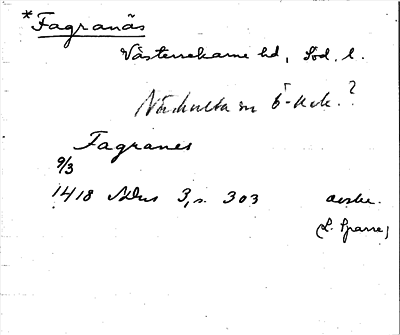 *Fagranäs
Västerrekarne hd, Söd. l.
Näshulta sn Ö-Rek.?
Fagranes
9/3
1418 SDns 3, s. 303 avskr.
(L. Sparre)